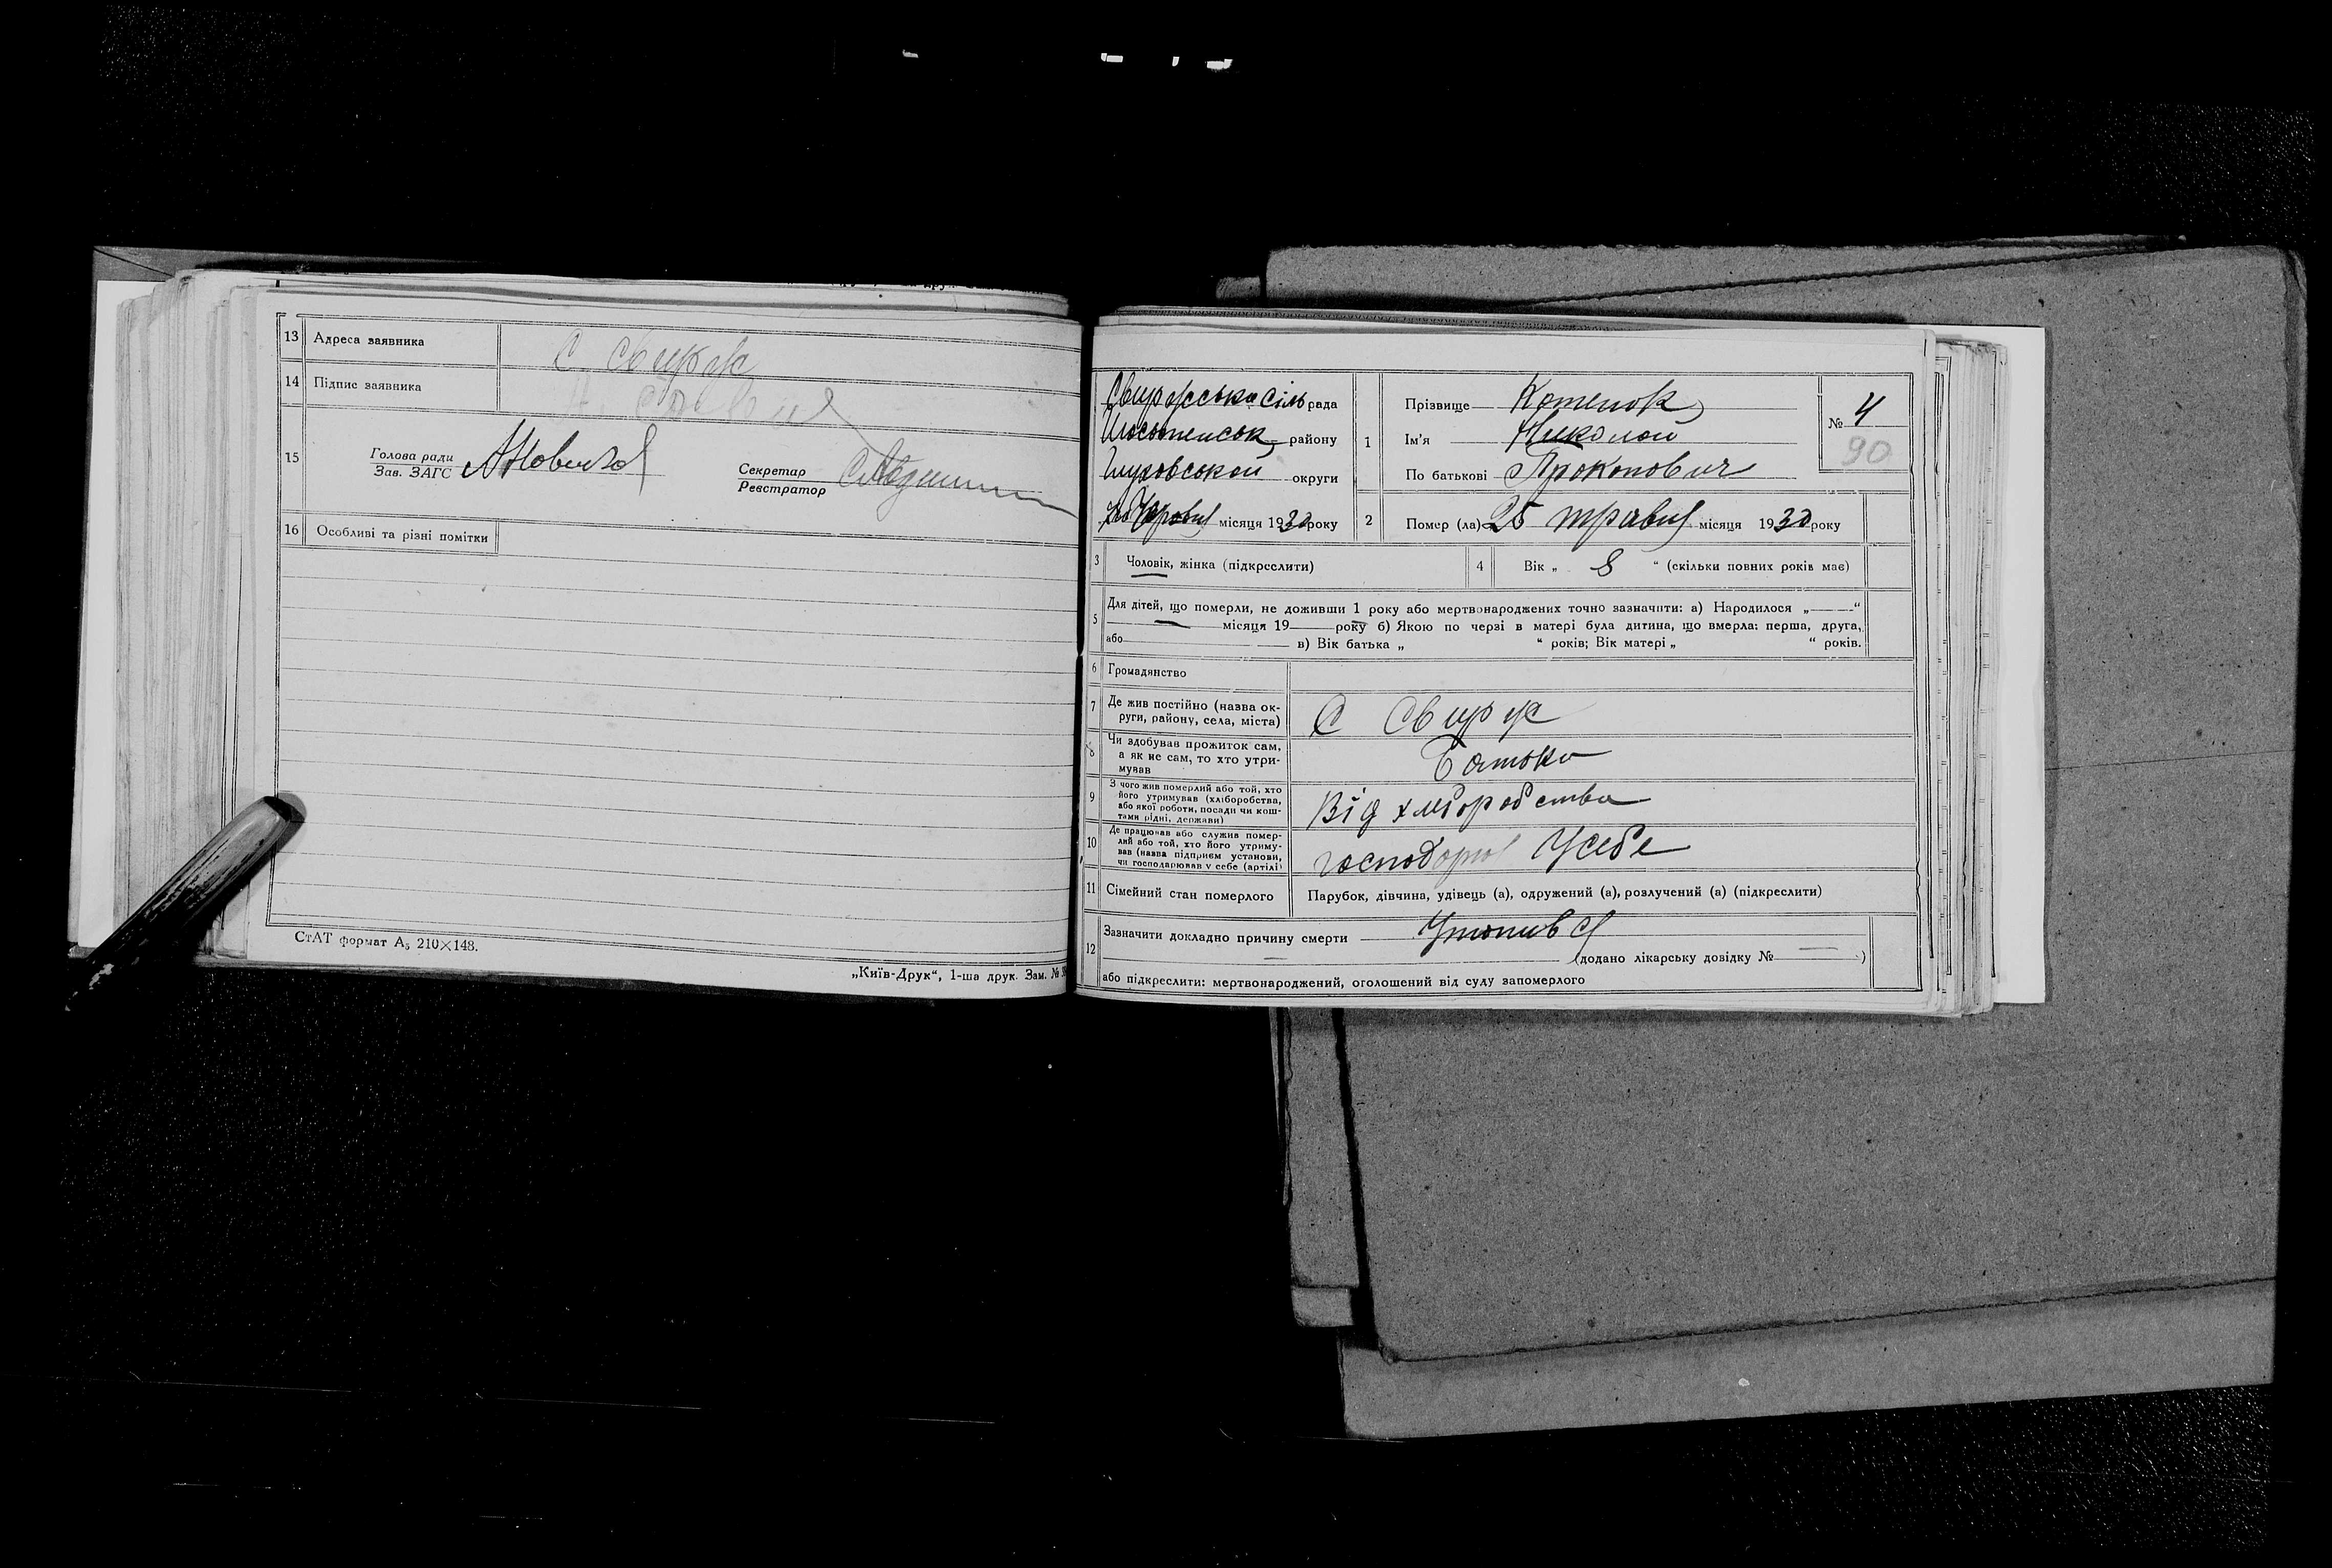 13 Адреса заявника С Свирж
14 Підпис заявника
15 Голова ради
Зав. ЗАГС
Секретар
Реєстратор
16 Особливі та різні помітки
СтАТ формат А₅ 210×148.
„Київ-Друк“, 1-ша друк. Зам. №
Свиржська сіль рада
району
Глуховской округи
місяця 1930 року
1 Прізвище Котенок
Ім'я Николай
По батькові Прокопович
№ 4
90
2 Помер (ла) 25 травня місяця 1930 року
3 Чоловік, жінка (підкреслити)
4 Вік „ 8 “ (скільки повних років має)
5 Для дітей, що померли, не доживши 1 року або мертвонароджених точно зазначити: а) Народилося „ — “
— місяця 19 — року б) Якою по черзі в матері була дитина, що вмерла: перша, друга,
або в) Вік батька „ “ років; Вік матері „ “ років.
6 Громадянство
7 Де жив постійно (назва округи, району, села, міста) С Свирж
8 Чи здобував прожиток сам,
а як не сам, то хто утримував Батько
9 З чого жив померлий або той, хто
його утримував (хліборобства,
або якої роботи, посади чи коштами рідні, держави) Від хліборобства
10 Де працював або служив померлий або той, хто його утримував (назва підприєм установи,
чи господарював у себе (артілі) господарюв Усебе
11 Сімейний стан померлого Парубок, дівчина, удівець (а), одружений (а), розлучений (а) (підкреслити)
12 Зазначити докладно причину смерти Утопився
— (додано лікарську довідку № — )
або підкреслити: мертвонароджений, оголошений від суду запомерлого